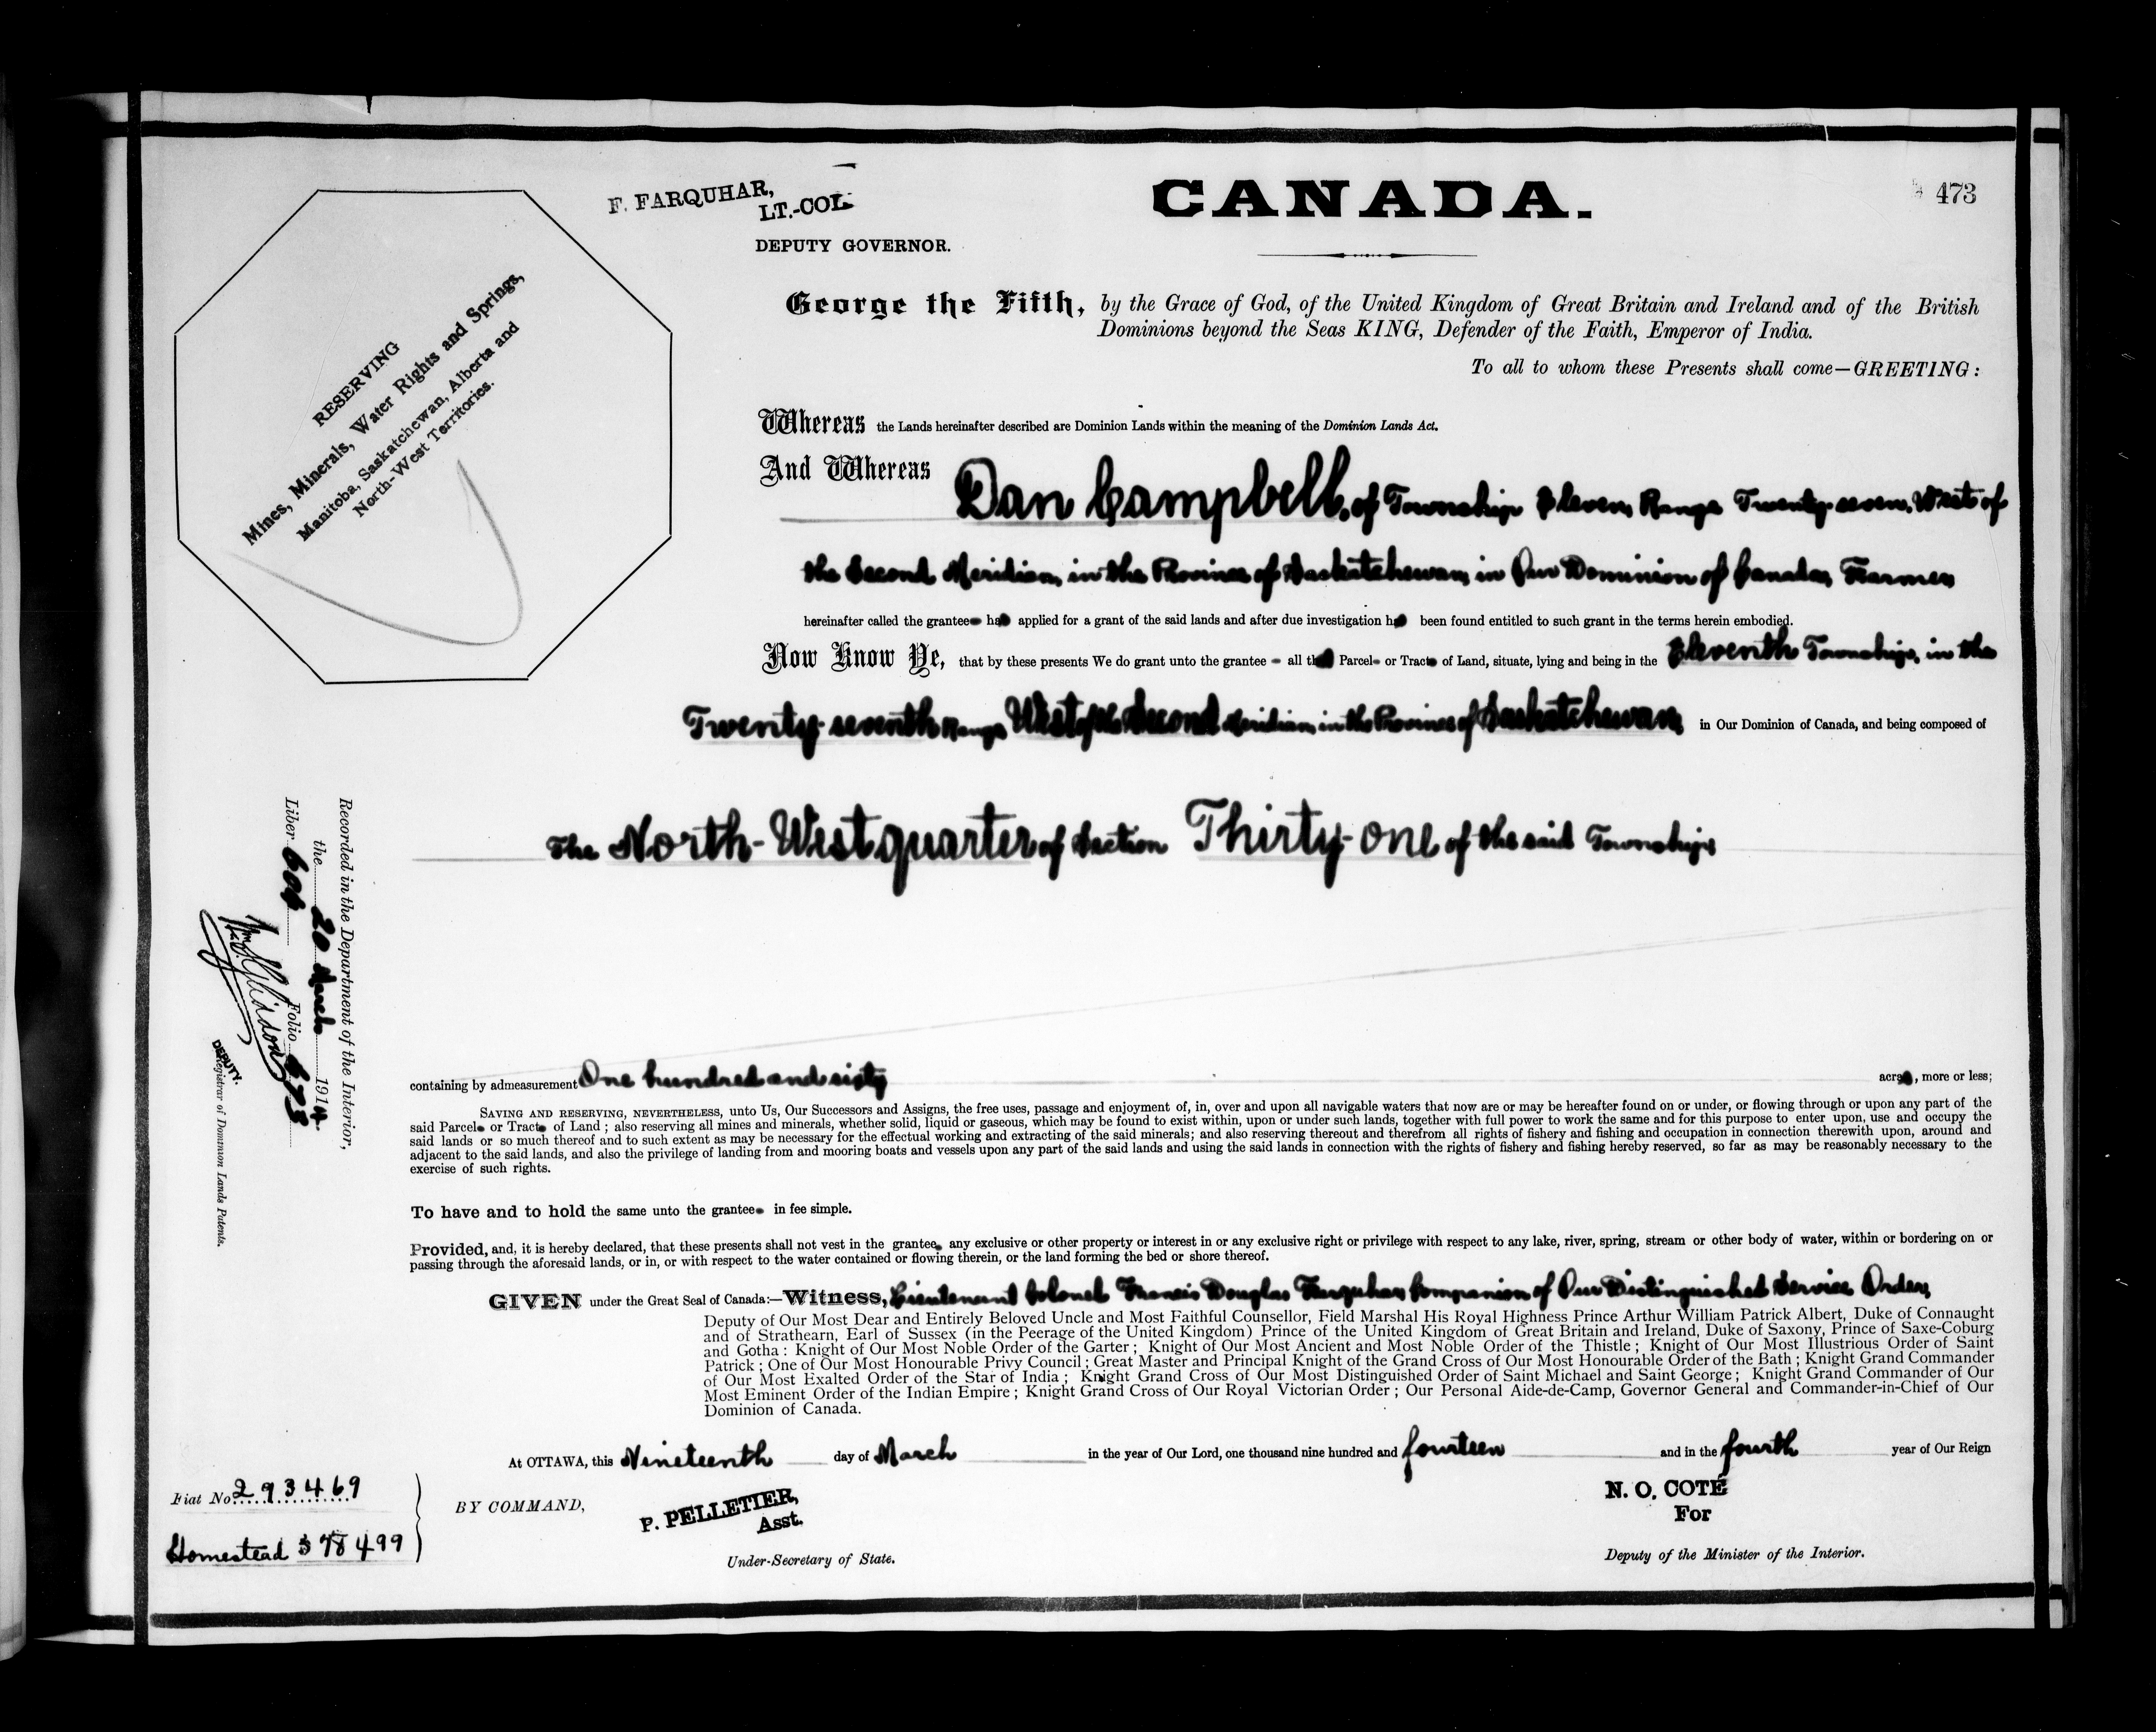 F. FARQUHAR,
LT.-COL
DEPUTY GOVERNOR.
CANADA.
473
RESERVING
Mines, Minerals, Water Rights and Springs,
Manitoba, Saskatchewan, Alberta and
North-West Territories.
George the Fifth, by the Grace of God, of the United Kingdom of Great Britain and Ireland and of the British
Dominions beyond the Seas KING, Defender of the Faith, Emperor of India.
To all to whom these Presents shall come—GREETING:
Whereas the Lands hereinafter described are Dominion Lands within the meaning of the Dominion Lands Act.
And Whereas Dan Campbell, of Township Eleven, Range Twenty-seven, West of
the Second Meridian, in the Province of Saskatchewan, in Our Dominion of Canada, Farmer
hereinafter called the grantee has applied for a grant of the said lands and after due investigation has been found entitled to such grant in the terms herein embodied.
Now Know Ye, that by these presents We do grant unto the grantee all that Parcel or Tract of Land, situate, lying and being in the Eleventh Township, in the
Twenty-seventh Range West of the Second Meridian, in the Province of Saskatchewan, in Our Dominion of Canada, and being composed of
The North-West quarter of Section Thirty-one of the said Township
containing by admeasurement One hundred and sixty acres, more or less;
SAVING AND RESERVING, NEVERTHELESS, unto Us, Our Successors and Assigns, the free uses, passage and enjoyment of, in, over and upon all navigable waters that now are or may be hereafter found on or under, or flowing through or upon any part of the
said Parcel or Tract of Land; also reserving all mines and minerals, whether solid, liquid or gaseous, which may be found to exist within, upon or under such lands, together with full power to work the same and for this purpose to enter upon, use and occupy the
said lands or so much thereof and to such extent as may be necessary for the effectual working and extracting of the said minerals; and also reserving thereout and therefrom all rights of fishery and fishing and occupation in connection therewith upon, around and
adjacent to the said lands, and also the privilege of landing from and mooring boats and vessels upon any part of the said lands and using the said lands in connection with the rights of fishery and fishing hereby reserved, so far as may be reasonably necessary to the
exercise of such rights.
To have and to hold the same unto the grantee in fee simple.
Provided, and, it is hereby declared, that these presents shall not vest in the grantee any exclusive or other property or interest in or any exclusive right or privilege with respect to any lake, river, spring, stream or other body of water, within or bordering on or
passing through the aforesaid lands, or in, or with respect to the water contained or flowing therein, or the land forming the bed or shore thereof.
GIVEN under the Great Seal of Canada:—Witness, Lieutenant Colonel Francis Douglas Farquhar, Companion of Our Distinguished Service Order,
Deputy of Our Most Dear and Entirely Beloved Uncle and Most Faithful Counsellor, Field Marshal His Royal Highness Prince Arthur William Patrick Albert, Duke of Connaught
and of Strathearn, Earl of Sussex (in the Peerage of the United Kingdom) Prince of the United Kingdom of Great Britain and Ireland, Duke of Saxony, Prince of Saxe-Coburg
and Gotha: Knight of Our Most Noble Order of the Garter; Knight of Our Most Ancient and Most Noble Order of the Thistle; Knight of Our Most Illustrious Order of Saint
Patrick; One of Our Most Honourable Privy Council; Great Master and Principal Knight of the Grand Cross of Our Most Honourable Order of the Bath; Knight Grand Commander
of Our Most Exalted Order of the Star of India; Knight Grand Cross of Our Most Distinguished Order of Saint Michael and Saint George; Knight Grand Commander of Our
Most Eminent Order of the Indian Empire; Knight Grand Cross of Our Royal Victorian Order; Our Personal Aide-de-Camp, Governor General and Commander-in-Chief of Our
Dominion of Canada.
At OTTAWA, this Nineteenth day of March in the year of Our Lord, one thousand nine hundred and fourteen and in the fourth year of Our Reign
BY COMMAND,
P. PELLETIER,
Asst.
Under-Secretary of State.
N. O. COTÉ
For
Deputy of the Minister of the Interior.
Fiat No. 293469
Homestead 
Recorded in the Department of the Interior,
the 20 March 1914
Liber Folio
DEPUTY.
Registrar of Dominion Lands Patents.